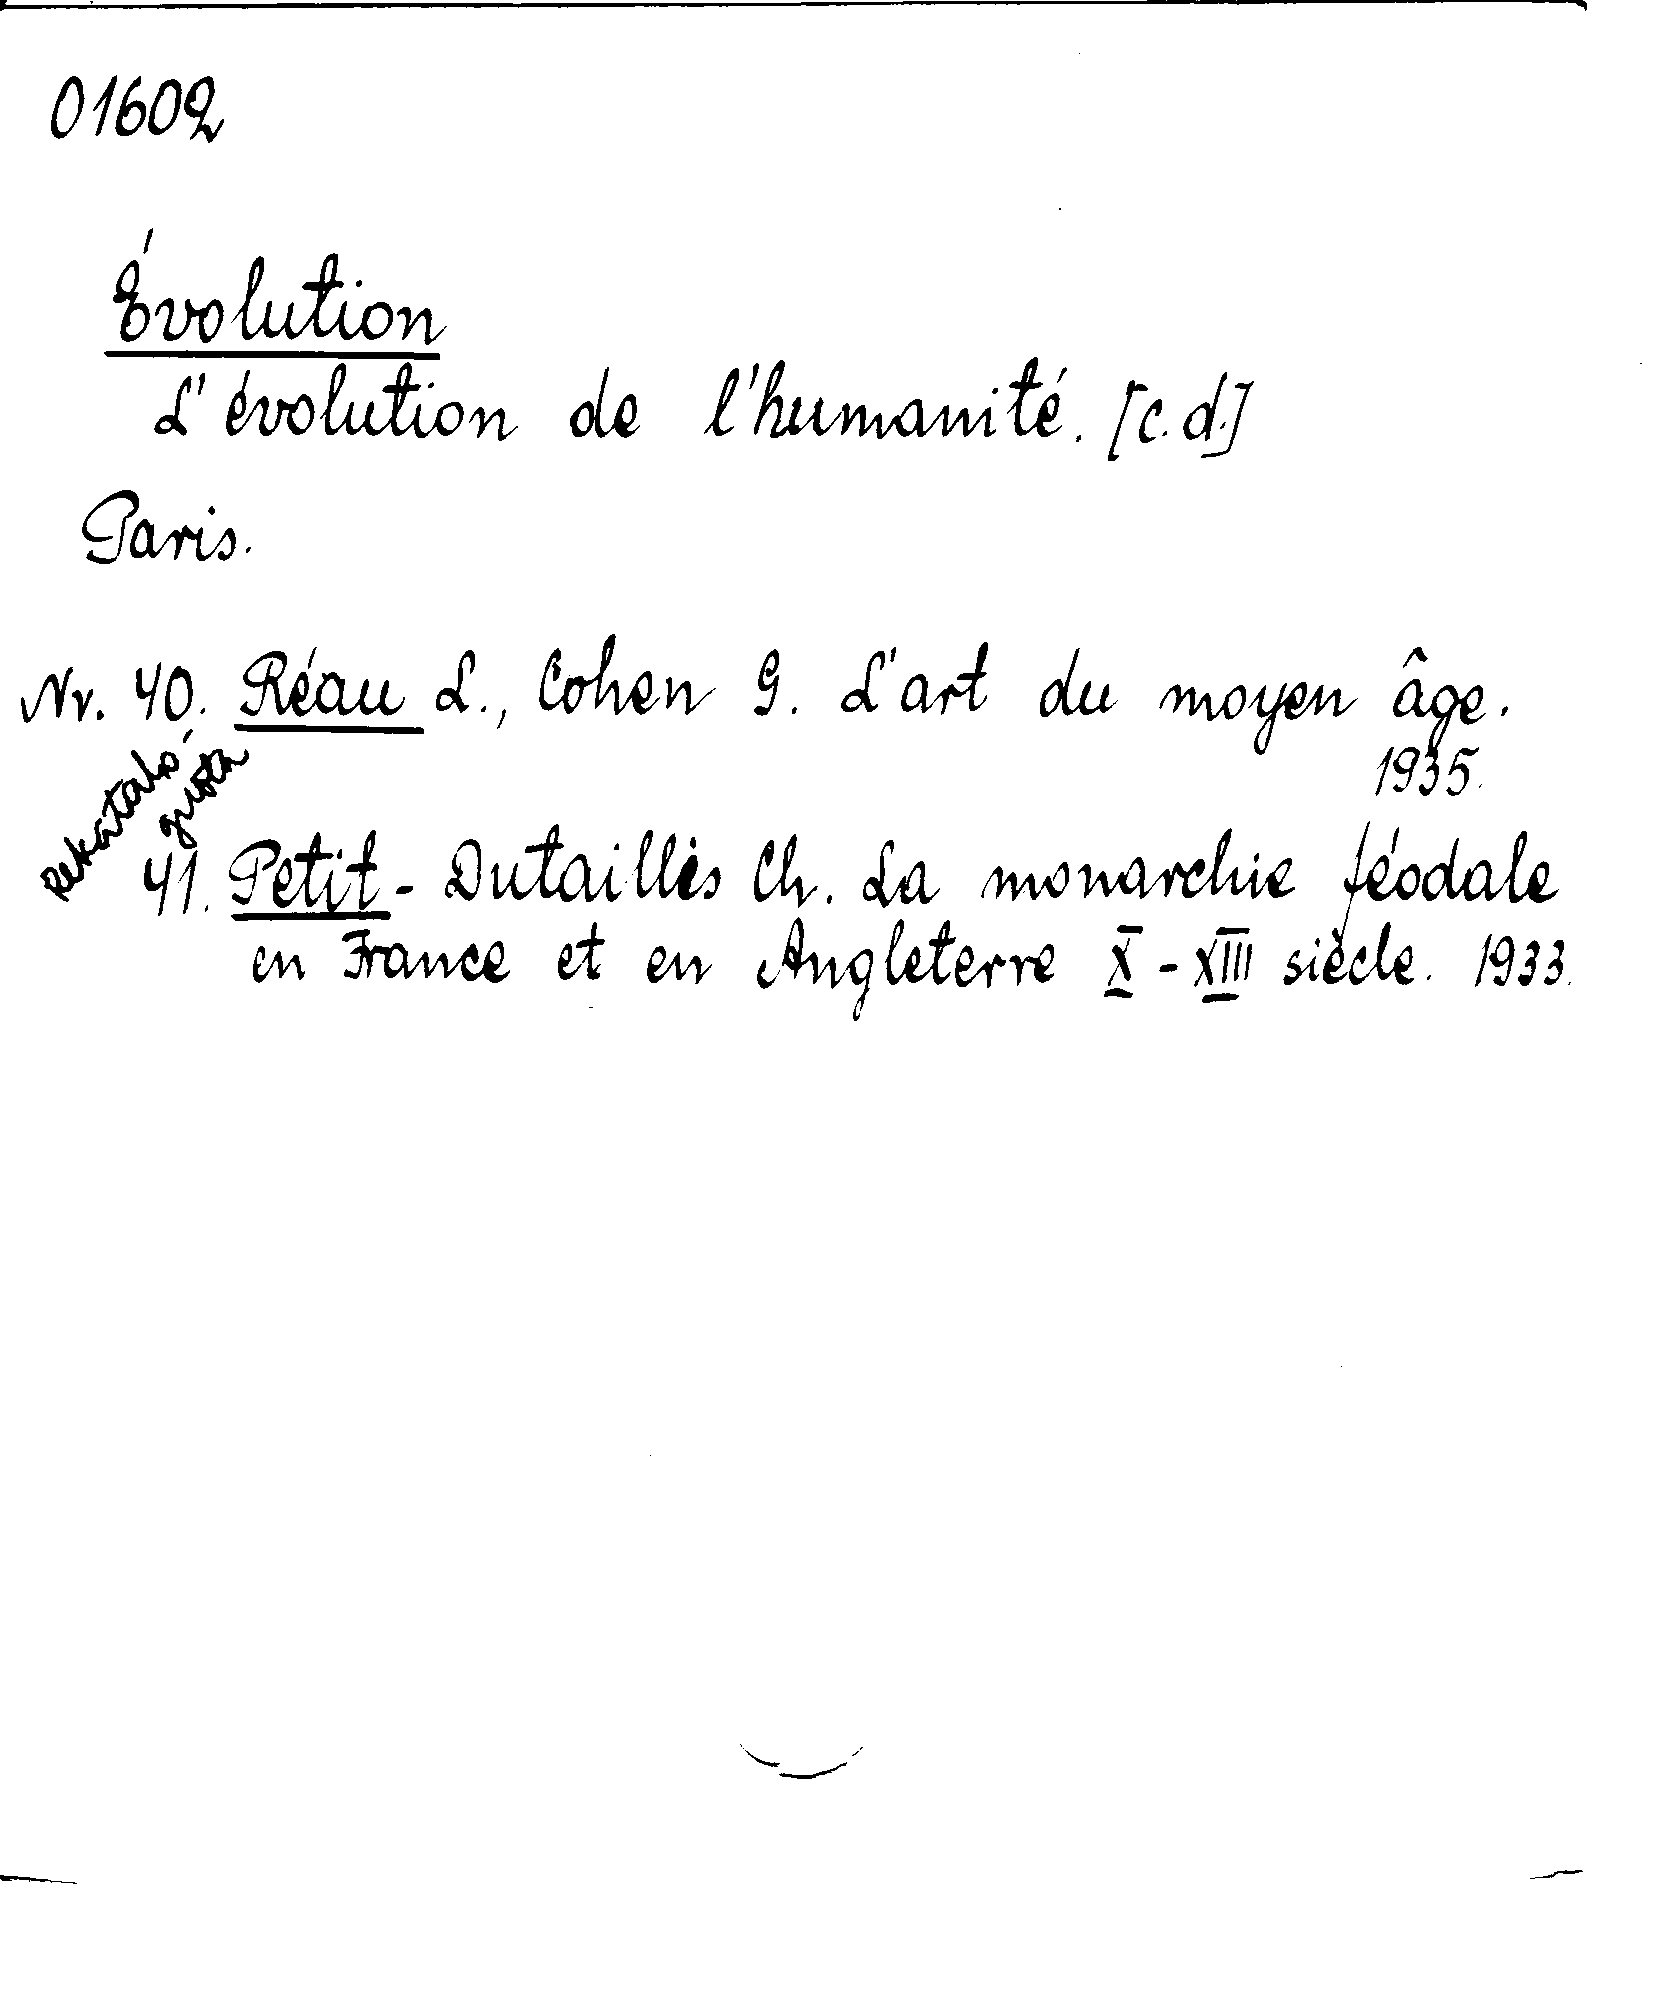 01602
Évolution
L'évolution de l'humanité. [c.d.]
Paris.
Nr. 40. Réau L., Cohen G. L'art du moyen âge.
1935.
41. Petit - Dutaillis Ch. La monarchie féodale
en France et en Angleterre X - XIII siècle. 1933.